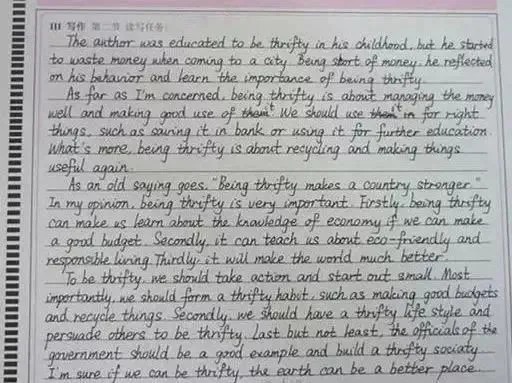 III 写作 第二节 读写任务:
The author was educated to be thrifty in his childhood, but he started
to waste money when coming to a city. Being short of money, he reflected
on his behavior and learn the importance of being thrifty.
As far as I'm concerned, being thrifty is about managing the money
well and making good use of it. We should use it for right
things, such as saving it in bank or using it for further education.
What's more, being thrifty is about recycling and making things
useful again.
As an old saying goes, "Being thrifty makes a country stronger."
In my opinion, being thrifty is very important. Firstly, being thrifty
can make us learn about the knowledge of economy if we can make
a good budget. Secondly, it can teach us about eco-friendly and
responsible living. Thirdly, it will make the world much better.
To be thrifty, we should take action and start out small. Most
importantly, we should form a thrifty habit, such as making good budgets
and recycle things. Secondly, we should have a thrifty life style and
persuade others to be thrifty. Last but not least, the officials of the
government should be a good example and build a thrifty sociaty.
I'm sure if we can be thrifty, the earth can be a better place.